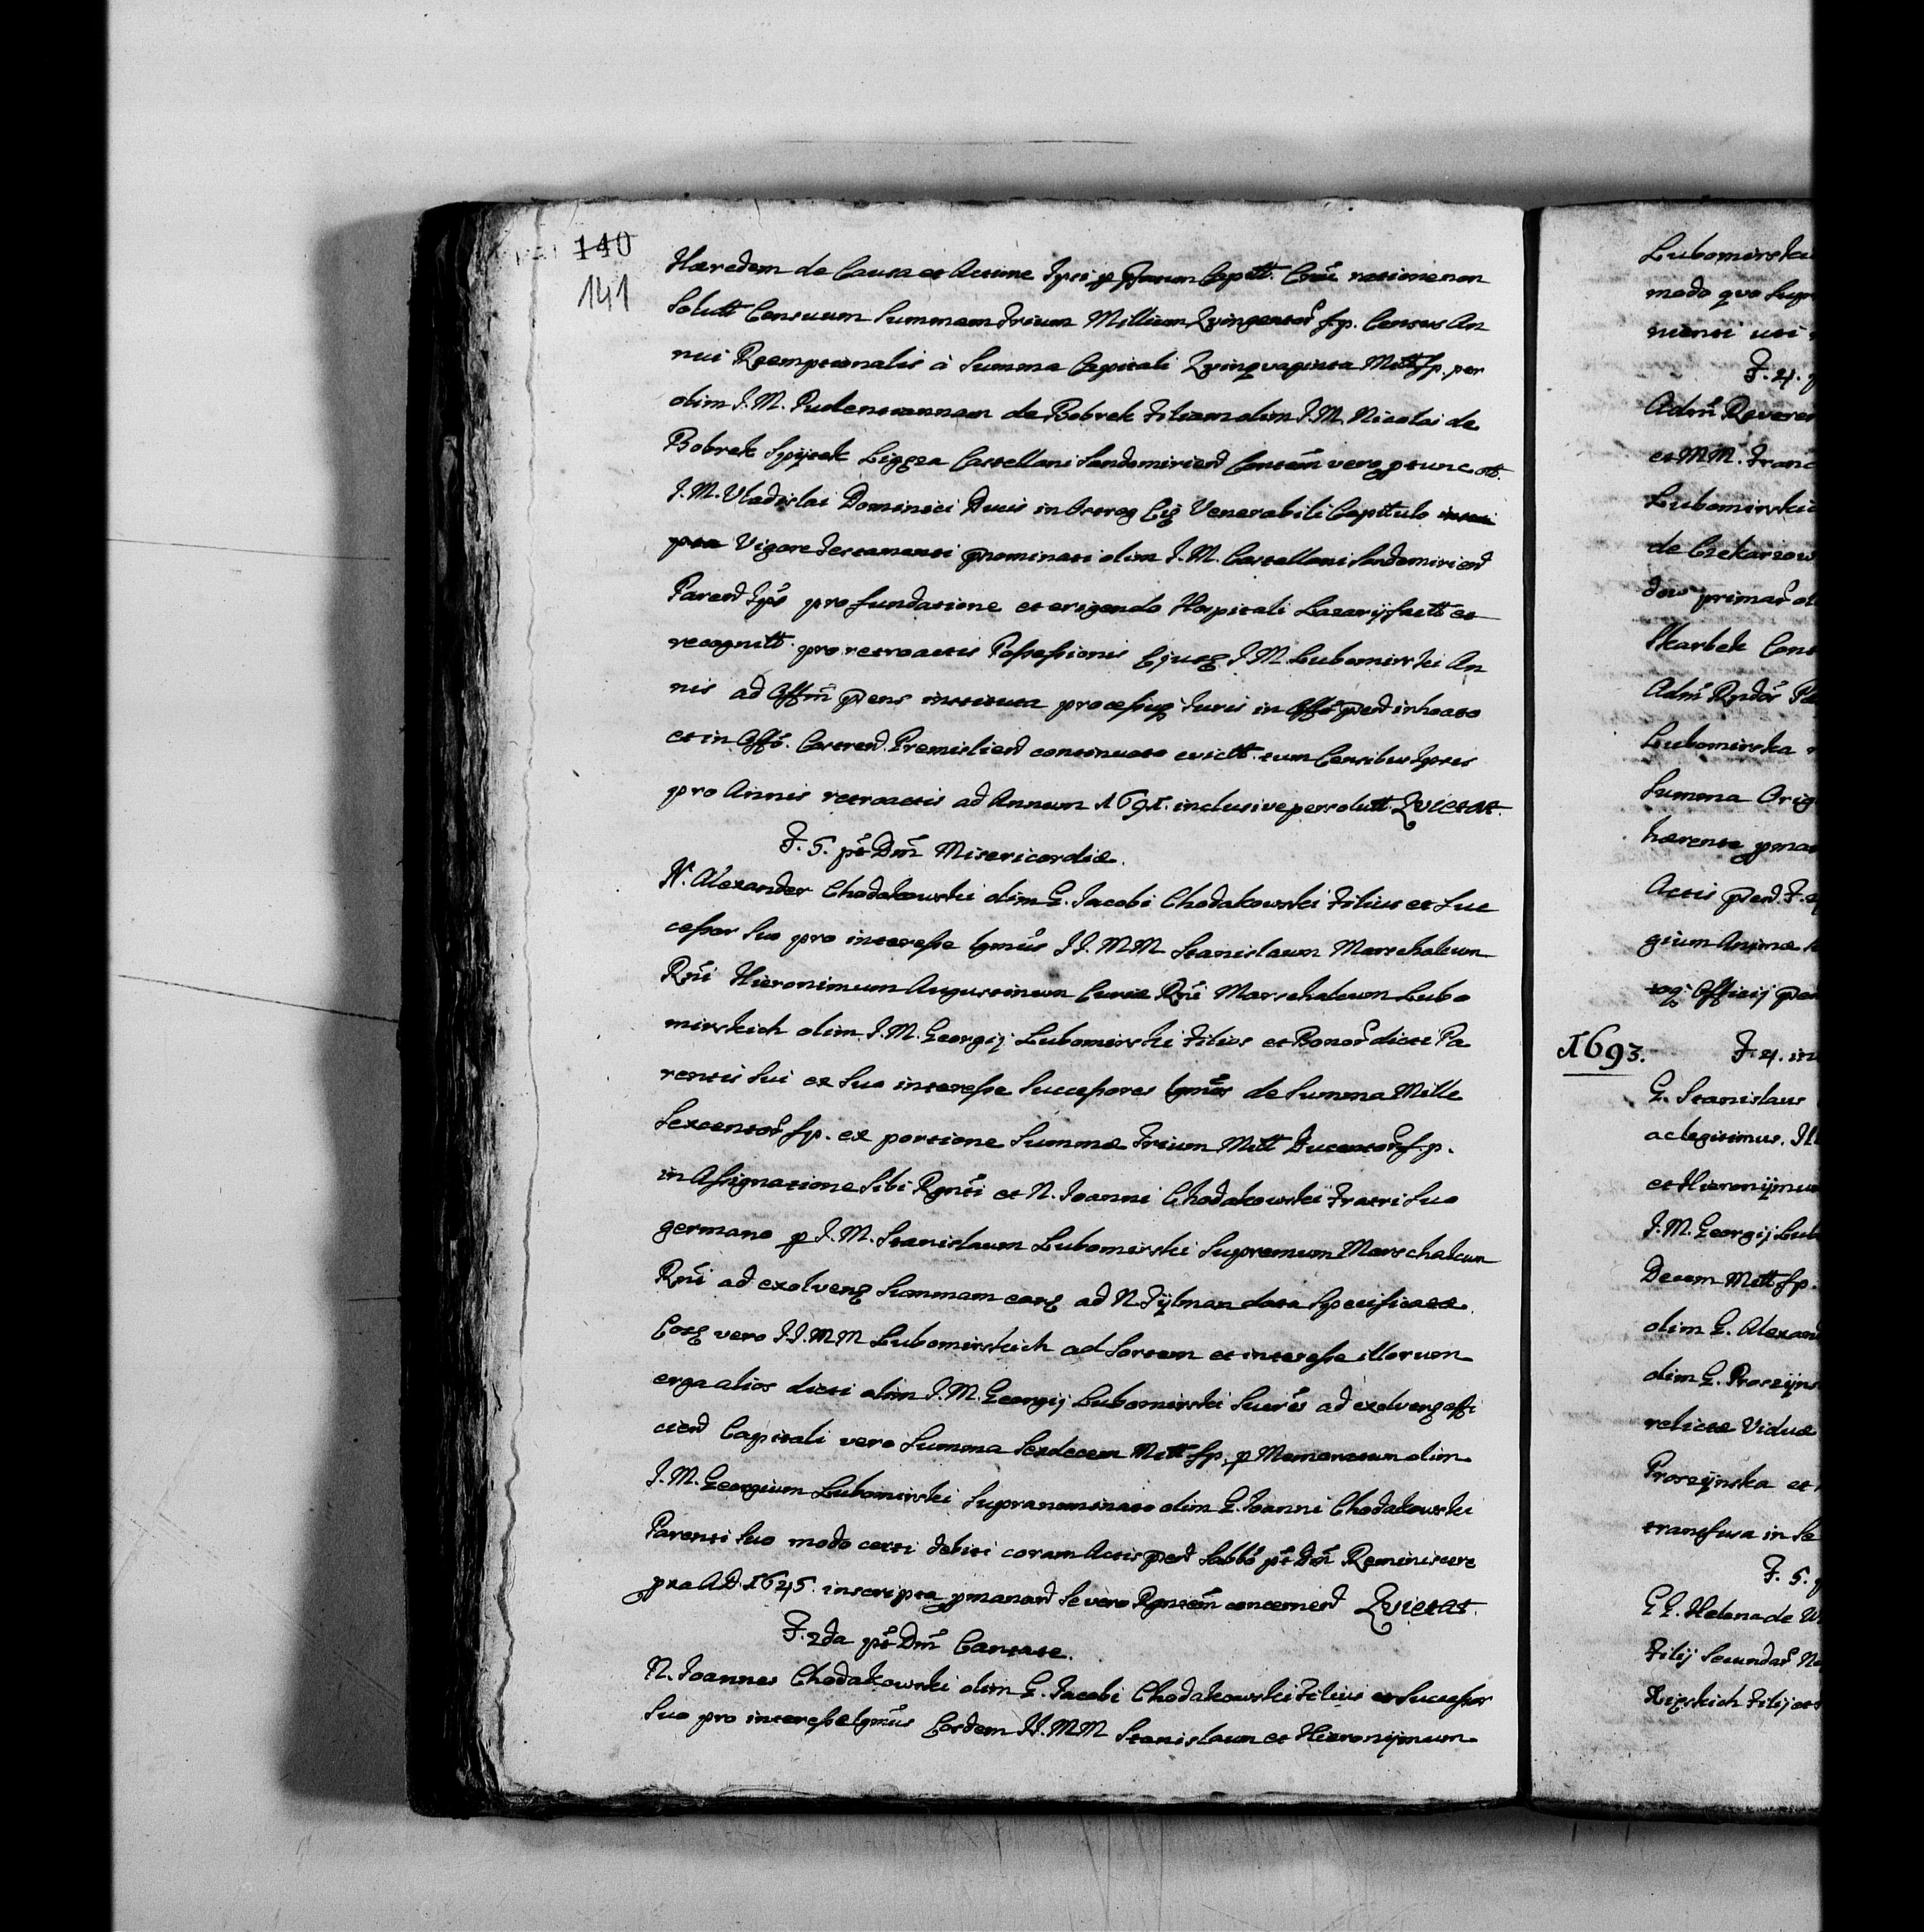 140
141
Hæredem de Causa et Actione Ipsi p Pfatum Capitt. Crac̃ ratione non
Solutt Censuum Summam Trium Millium Qvingentor̃ fp. Census An
nui Reemptionalis à Summa Capitali Qvinqvaginta Mill fp. per
olim I. M. Pudentiannam de Bobrek Filiam olim I M. Nicolai de
Bobrek Spytek Ligęza Castellani Sandomirien̄ Consortem vero ptunc olim
I. M. Vladislai Dominici Ducis in Ostrog Ei₃ Venerabili Capitulo
Vigore Testamenti pnominati olim I. M. Castellani Sandomirien̄
Paren̄ Ips̃ pro fundatione et erigendo Hospitali Lazarij factt et
recognitt. pro retroactis Possessionis Ejusq₃ I M. Lubomirski An
nis ad Off̃m pñens instituta processuq₃ Juris in Off̃o pñen̄ inhoato
et in Off̃o. Castren̄. Premislien̄ continuato evictt. cum Censibus Ipsis
pro Annis retroactis ad Annum 1691. inclusive persolutt. Qvietat.
F. 5. p̃t Dm̃ Misericordiæ.
N. Alexander Chodakowski olim G. Jacobi Chodakowski Filius et Suc
cessor Suo pro interesse lgm̃us II. MM Stanislaum Marschalcum
Rñi Hieronimum Augustinum Curiæ Rñi Marschalcum Lubo
mirskich olim I. M. Georgij Lubomirski Filios et Bonor̃ dicti Pa
rentis Sui ex Suo interesse Successores lgm̃os de Summa Mille
Sexcentor̃ fp. ex portione Summæ Trium Mill Ducentor̃ fp.
in Assignatione Sibi Rgnti et N. Joanni Chodakowski Fratri Suo
germano p I. M. Stanislaum Lubomirski Supremum Marschalcum
Rñi ad exolven₃ Summam ean₃ ad N. Tylman data Specificata.
Eosq₃ vero II. MM Lubomirskich ad Sortem et interesse illorum
erga alios dicti olim I. M. Georgij Lubomirski Sucr̃es ad exolven₃ affi
cien̄ Capitali vero Summa Sexdecem Mill fp. p Memoratum olim
I. M. Georgium Lubomirski Supranominato olim G. Joanni Chodakowski
Parenti Suo modo certi debiti coram Actis pñen̄ Sabb̃o p̃t Dm̃ Reminiscere
pra A.D. 1645. inscripta pmanen̄ Se vero Rgntẽm concernen̄ Qvietat.
F. 2da p̃t Dm̃ Cantate.
N. Joannes Chodakowski olim G. Jacobi Chodakowski Filius et Successor
Suo pro interesse lgm̃us Eosdem II. MM Stanislaum et Hieronijmum
Lubomirski
modo quo Supr
menti uti
F. 4.
Adm̃ Reveren
et MM. Franc
Lubomirskic
de Czekarzow
dow primar̃ ol
Skarbek Cons
Adm̃ Rndõs Pa
Lubomirska
Summa Orig
hærente pman
Actis pñen̄ F. 4
gium Animæ
Officij pñen
1693. F. 4. in
G. Stanislaus
ac legitimus. Il
et Hieronijmum
I. M. Georgij Lub
Decem Mill fp.
olim G. Alexand
olim G. Proszyns
relictæ Viduæ
Proszynska et
transfusa in Se
F. 5.
GG. Helena de W
Filij Secundar̃ N
Filij